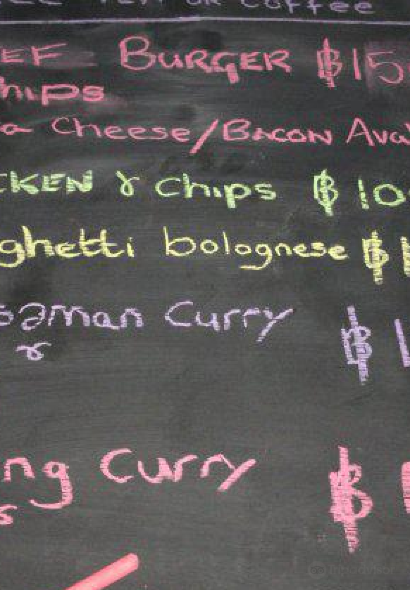 TEA OR COFFEE
EF BURGER ฿15
hips
a Cheese/BACON Ava
CKEN & Chips ฿10
ghetti bolognese ฿1
saman Curry ฿1
r
ng Curry ฿
s